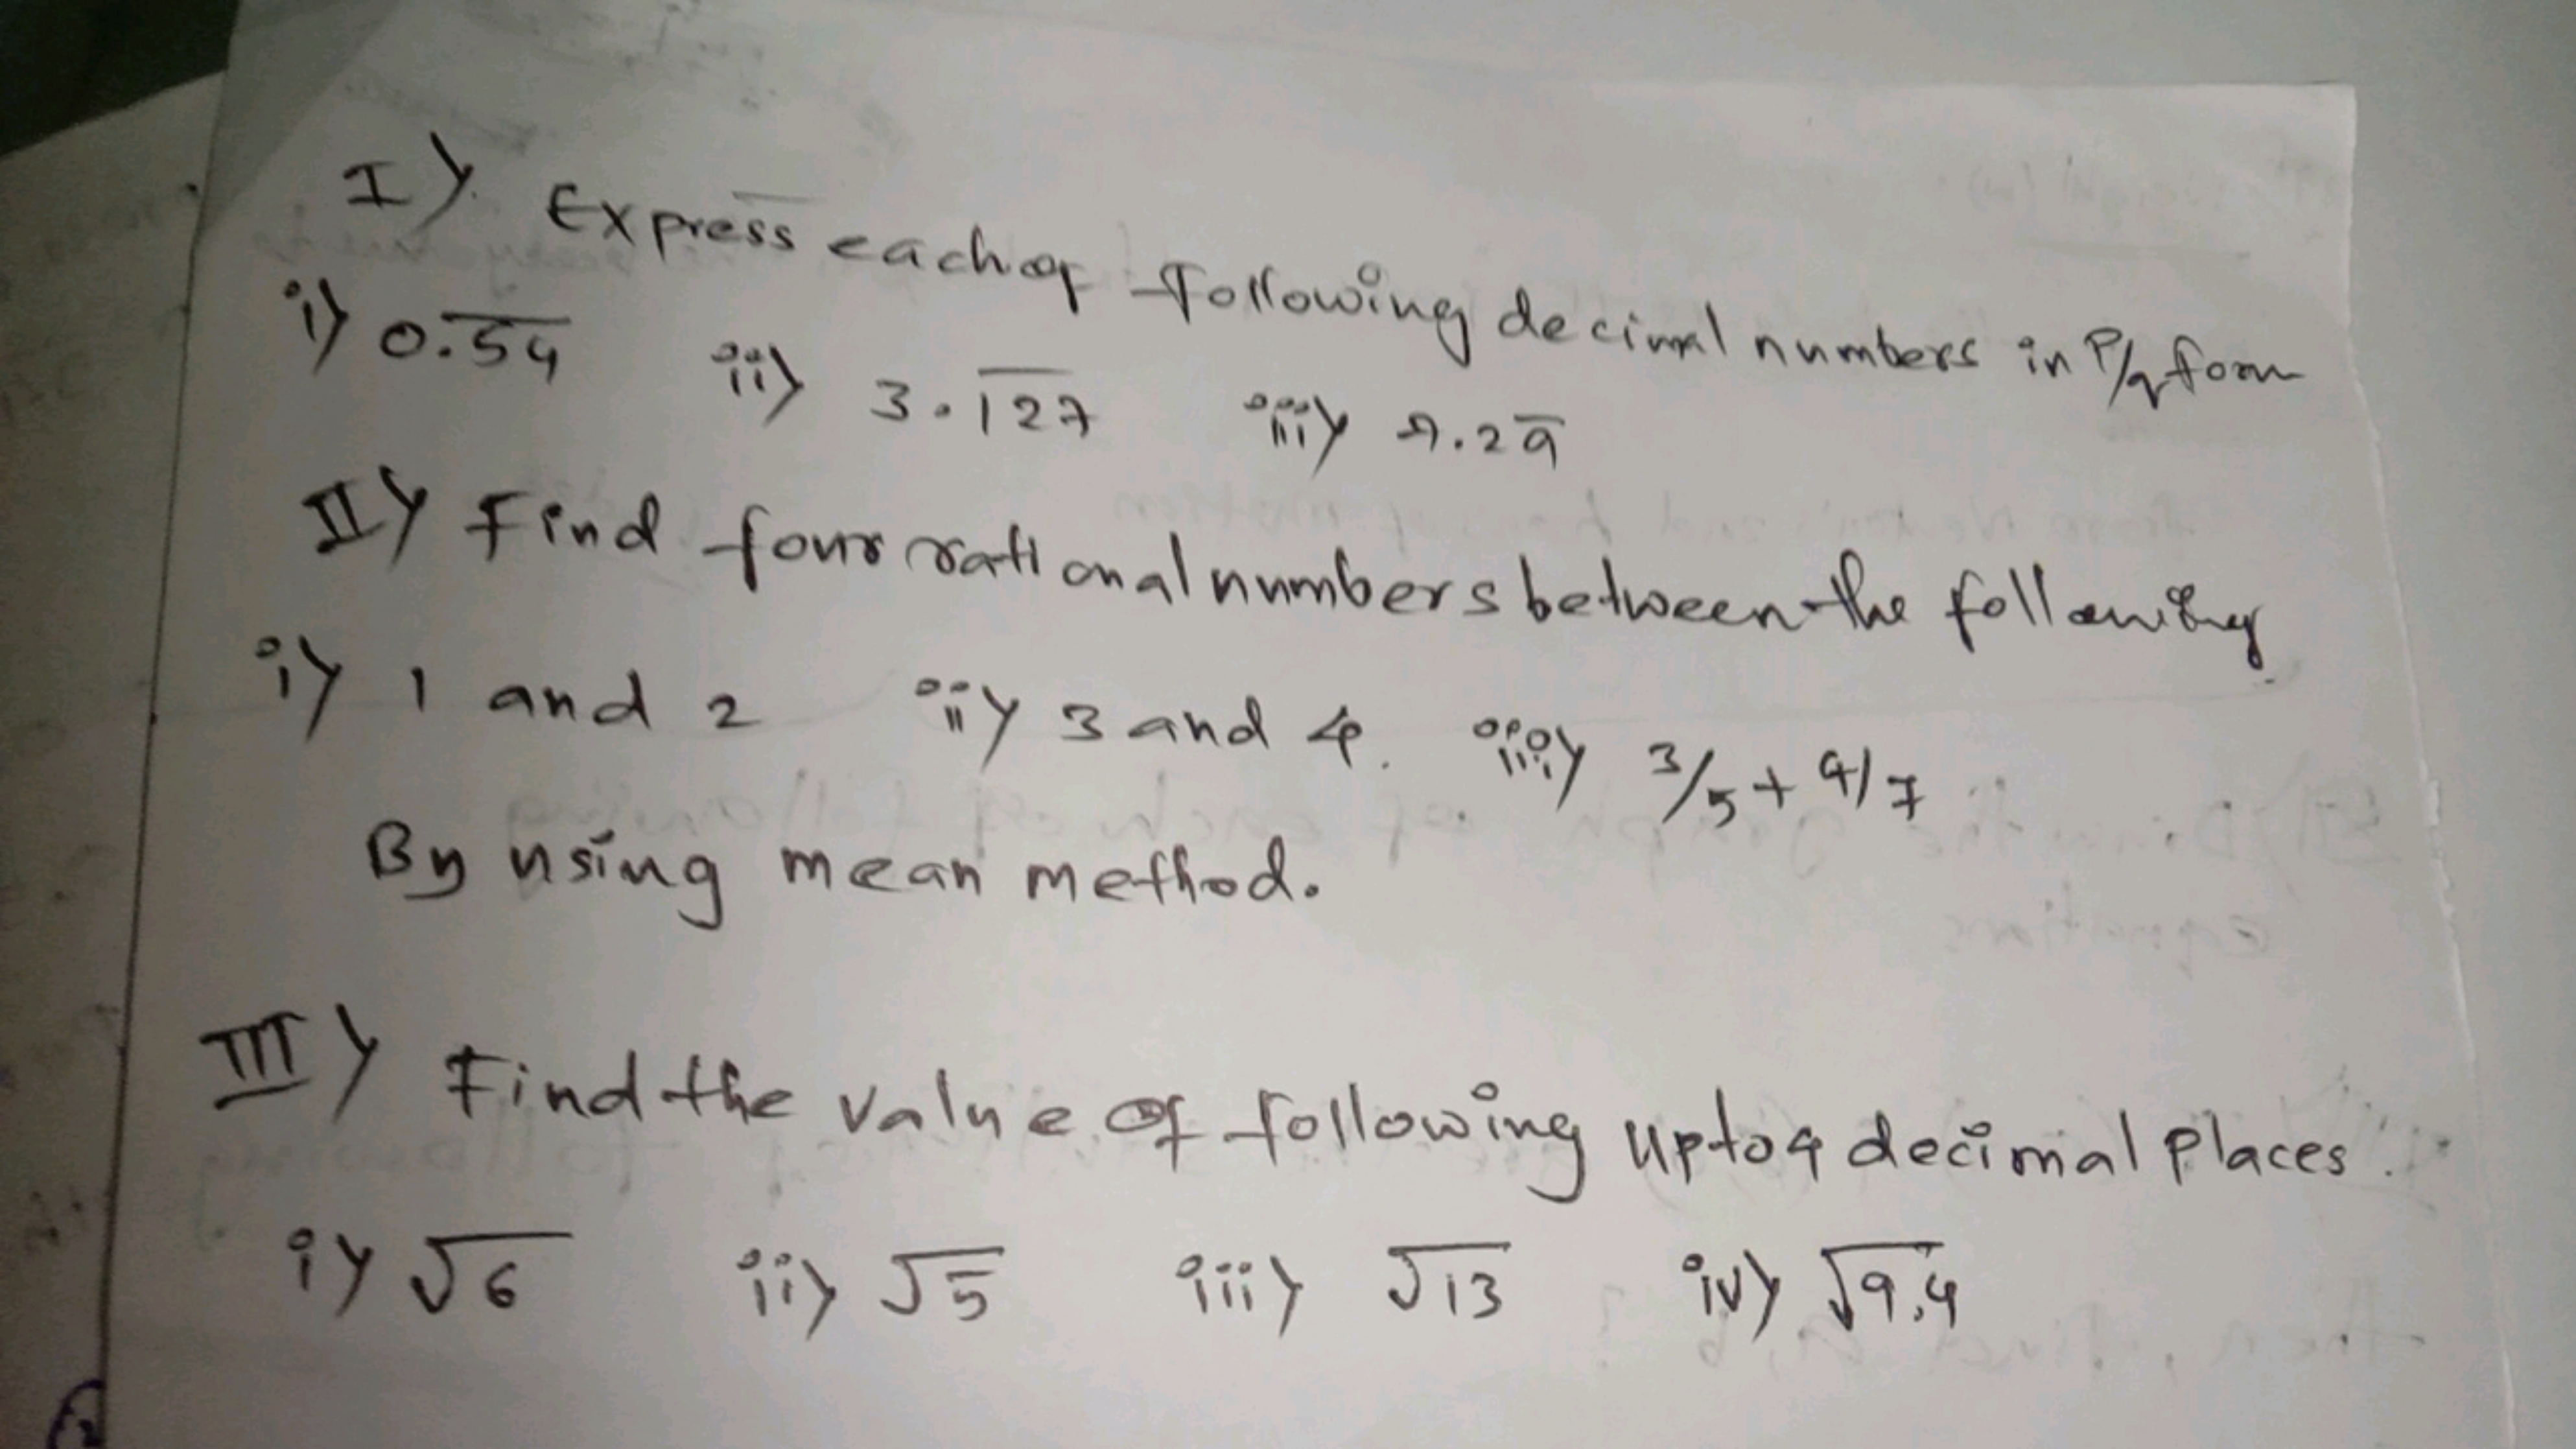 I) Express each of following decimal numbers in P/q form
i) 0.5̅4̅ ii) 3.1̅2̅7̅ iii) 9.29̅
II) Find four rational numbers between the following
i) 1 and 2 ii) 3 and 4. iii) 3/5 + 4/7
By using mean method.
III) Find the value of following upto 4 decimal places.
i) √6 ii) √5 iii) √13 iv) √9.4